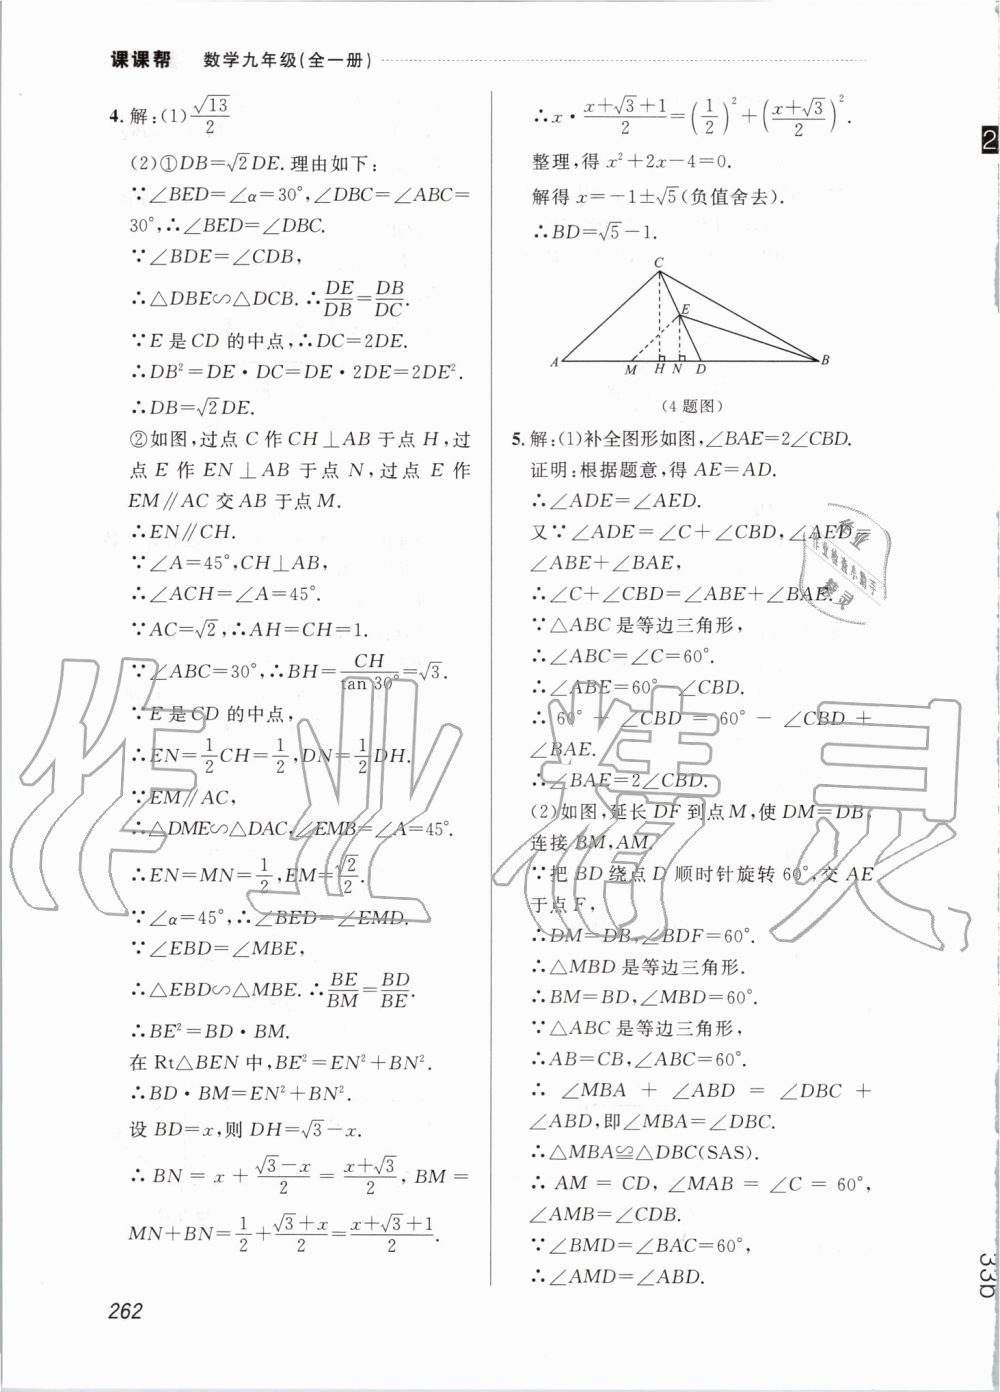 课课帮 数学九年级(全一册)
4. 解:(1)√13/2
(2)①DB=√2DE.理由如下:
∵∠BED=∠α=30°,∠DBC=∠ABC=
30°,∴∠BED=∠DBC.
∵∠BDE=∠CDB,
∴△DBE∽△DCB.∴DE/DB=DB/DC.
∵E是CD的中点,∴DC=2DE.
∴DB²=DE·DC=DE·2DE=2DE².
∴DB=√2DE.
②如图,过点C作CH⊥AB于点H,过
点E作EN⊥AB于点N,过点E作
EM∥AC交AB于点M.
∴EN∥CH.
∵∠A=45°,CH⊥AB,
∴∠ACH=∠A=45°.
∵AC=√2,∴AH=CH=1.
∵∠ABC=30°,∴BH=CH/tan 30°=√3.
∵E是CD的中点,
∴EN=1/2CH=1/2,DN=1/2DH.
∵EM∥AC,
∴△DME∽△DAC,∠EMB=∠A=45°.
∴EN=MN=1/2,EM=√2/2.
∵∠α=45°,∴∠BED=∠EMD.
∵∠EBD=∠MBE,
∴△EBD∽△MBE.∴BE/BM=BD/BE.
∴BE²=BD·BM.
在Rt△BEN中,BE²=EN²+BN².
∴BD·BM=EN²+BN².
设BD=x,则DH=√3-x.
∴BN=x+(√3-x)/2=(x+√3)/2,BM=
MN+BN=1/2+(√3+x)/2=(x+√3+1)/2.
262
∴x·(x+√3+1)/2=(1/2)²+((x+√3)/2)².
整理,得x²+2x-4=0.
解得x=-1±√5(负值舍去).
∴BD=√5-1.
C
E
A M H N D B
(4题图)
5. 解:(1)补全图形如图,∠BAE=2∠CBD.
证明:根据题意,得AE=AD.
∴∠ADE=∠AED.
又∵∠ADE=∠C+∠CBD,∠AED=
∠ABE+∠BAE,
∴∠C+∠CBD=∠ABE+∠BAE.
∵△ABC是等边三角形,
∴∠ABC=∠C=60°.
∴∠ABE=60°-∠CBD.
∴60°+∠CBD=60°-∠CBD+
∠BAE.
∴∠BAE=2∠CBD.
(2)如图,延长DF到点M,使DM=DB,
连接BM,AM.
∵把BD绕点D顺时针旋转60°,交AE
于点F,
∴DM=DB,∠BDF=60°.
∴△MBD是等边三角形.
∴BM=BD,∠MBD=60°.
∵△ABC是等边三角形,
∴AB=CB,∠ABC=60°.
∴∠MBA+∠ABD=∠DBC+
∠ABD,即∠MBA=∠DBC.
∴△MBA≌△DBC(SAS).
∴AM=CD,∠MAB=∠C=60°,
∠AMB=∠CDB.
∵∠BMD=∠BAC=60°,
∴∠AMD=∠ABD.
作业
作业检查小助手
精灵
作业精灵
2